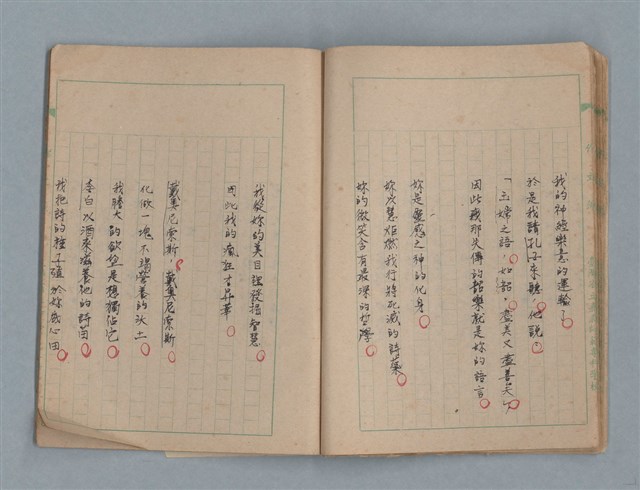 我的神經樂意的運輸了。
於是我請孔子來聽，他說：
「三嬸之語，如韶，盡美又盡善矣」
因此我那失傳的韶樂就是妳的語言。
妳是靈感之神的化身。
妳次慧炬燃我行將死滅的詩葉。
妳的微笑含有最深的哲學。
我從妳的美目挖發掘智慧
因此我的瘋狂才昇華。
戴奧尼索斯，戴奧尼索斯。
化做一塊不識營養的泳土。
我勝大的慾望是想獨佔它。
李白以酒來滋養他的詩苗。
我把詩的種子殖於妳底心田。